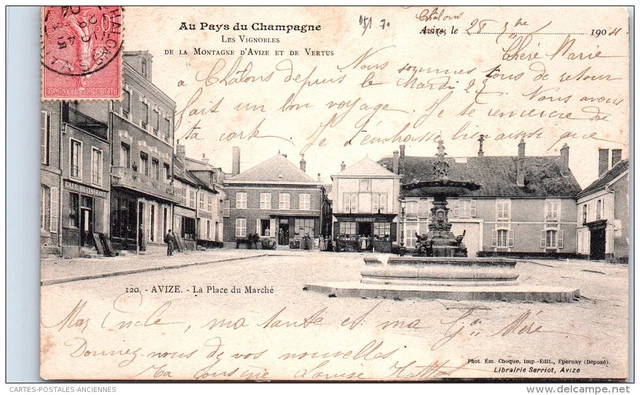 Au Pays du Champagne
Les Vignobles
de la Montagne d'Avize et de Vertus
Chalons
Avize, le 28 9bre 1904
Chère Marie
Nous sommes tous de retour
à Chalons depuis le Mardi 25 Nous avons
fait un bon voyage. Je te remercie de
ta carte. Je t'embrasse bien ainsi que
CAFÉ RESTAURANT
120. - AVIZE. - La Place du Marché
Mon Oncle, ma tante et ma Grand Mère
Donnez nous de vos nouvelles
Ta Cousine Louise
Phot. Em. Choque, Imp.-Edit., Epernay (Déposé).
Librairie Serriot, Avize
CARTES-POSTALES-ANCIENNES